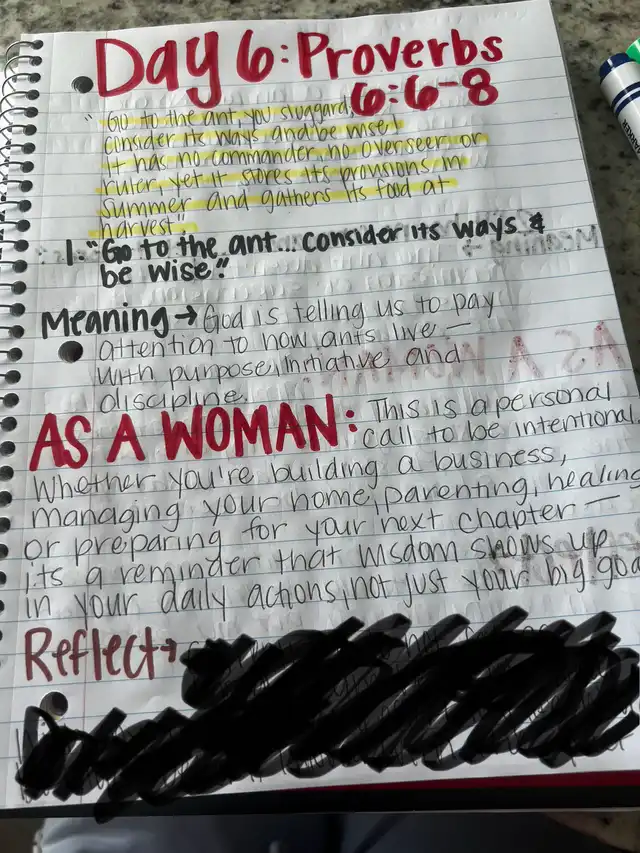 Day 6: Proverbs
6:6-8
"Go to the ant, you sluggard,
consider its ways and be wise!
It has no commander, no overseer or
ruler, yet it stores its provisions in
summer and gathers its food at
harvest"
1. "Go to the ant... consider its ways &
be wise."
Meaning → God is telling us to pay
attention to how ants live —
with purpose, initiative and
discipline.
AS A WOMAN: This is a personal
call to be intentional.
Whether you're building a business,
managing your home, parenting, healing
or preparing for your next chapter —
its a reminder that wisdom shows up
in your daily actions, not just your big goa
Reflect →